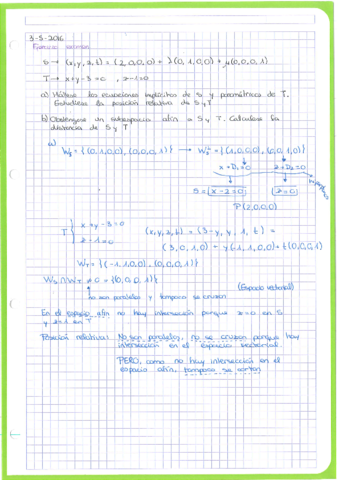 3-5-2016
Ejercicio examen
S → (x,y,z,t) = (2,0,0,0) + λ(0,1,0,0) + μ(0,0,0,1)
T → x+y-3=0 , z-1=0
a) Hállese las ecuaciones implícitas de S y paramétricas de T.
Estúdiese la posición relativa de S y T
b) Obténgase un subespacio afín a S y T. Calcúlese la
distancia de S y T
a)
W_S = {(0,1,0,0), (0,0,0,1)} → W_S^⊥ = {(1,0,0,0), (0,0,1,0)}
x+D₁=0 z+D₂=0
S = x-2=0 z=0
P(2,0,0,0)
T { x+y-3=0
z-1=0
(x,y,z,t) = (3-y, y, 1, t) =
(3,0,1,0) + y(-1,1,0,0) + t(0,0,0,1)
W_T = {(-1,1,0,0), (0,0,0,1)}
W_S ∩ W_T ≠ 0 = {(0,0,0,1)}
no son paralelos y tampoco se cruzan (Espacio vectorial)
En el espacio afín no hay intersección porque z=0 en S
y z=1 en T
Posición relativa: No son paralelos, no se cruzan porque hay
intersección en el espacio vectorial.
PERO, como no hay intersección en el
espacio afín, tampoco se cortan